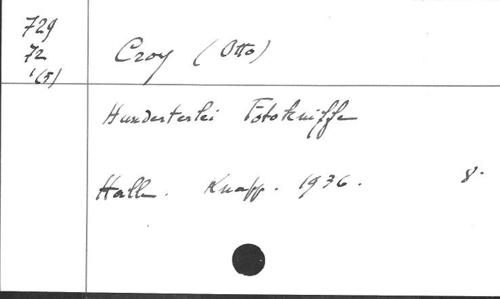 729
72
1(5)
Croy (Otto)
Hunderterlei Fotokniffe
Halle. Knapp. 1936. 8.